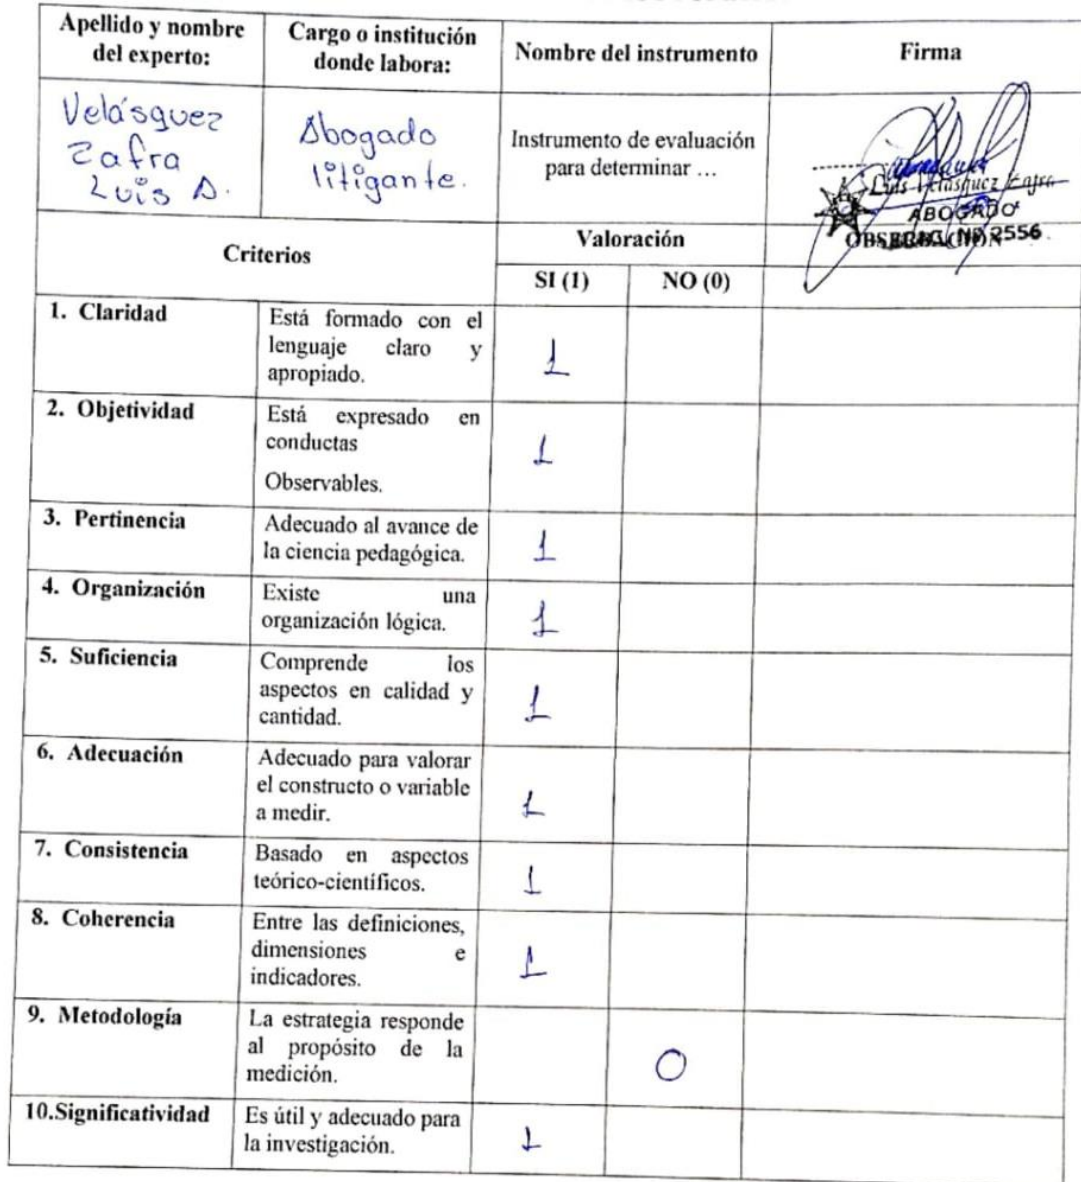 Apellido y nombre
del experto:
Cargo o institución
donde labora:
Nombre del instrumento
Firma
Velásquez
Zafra
Luis A.
Abogado
litigante.
Instrumento de evaluación
para determinar ...
Luis Velásquez Zafra
ABOGADO
2556
Criterios
Valoración
OBSERVACIÓN
SI (1)
NO (0)
1. Claridad
Está formado con el
lenguaje claro y
apropiado.
1
2. Objetividad
Está expresado en
conductas
Observables.
1
3. Pertinencia
Adecuado al avance de
la ciencia pedagógica.
1
4. Organización
Existe una
organización lógica.
1
5. Suficiencia
Comprende los
aspectos en calidad y
cantidad.
1
6. Adecuación
Adecuado para valorar
el constructo o variable
a medir.
1
7. Consistencia
Basado en aspectos
teórico-científicos.
1
8. Coherencia
Entre las definiciones,
dimensiones e
indicadores.
1
9. Metodología
La estrategia responde
al propósito de la
medición.
0
10.Significatividad
Es útil y adecuado para
la investigación.
1